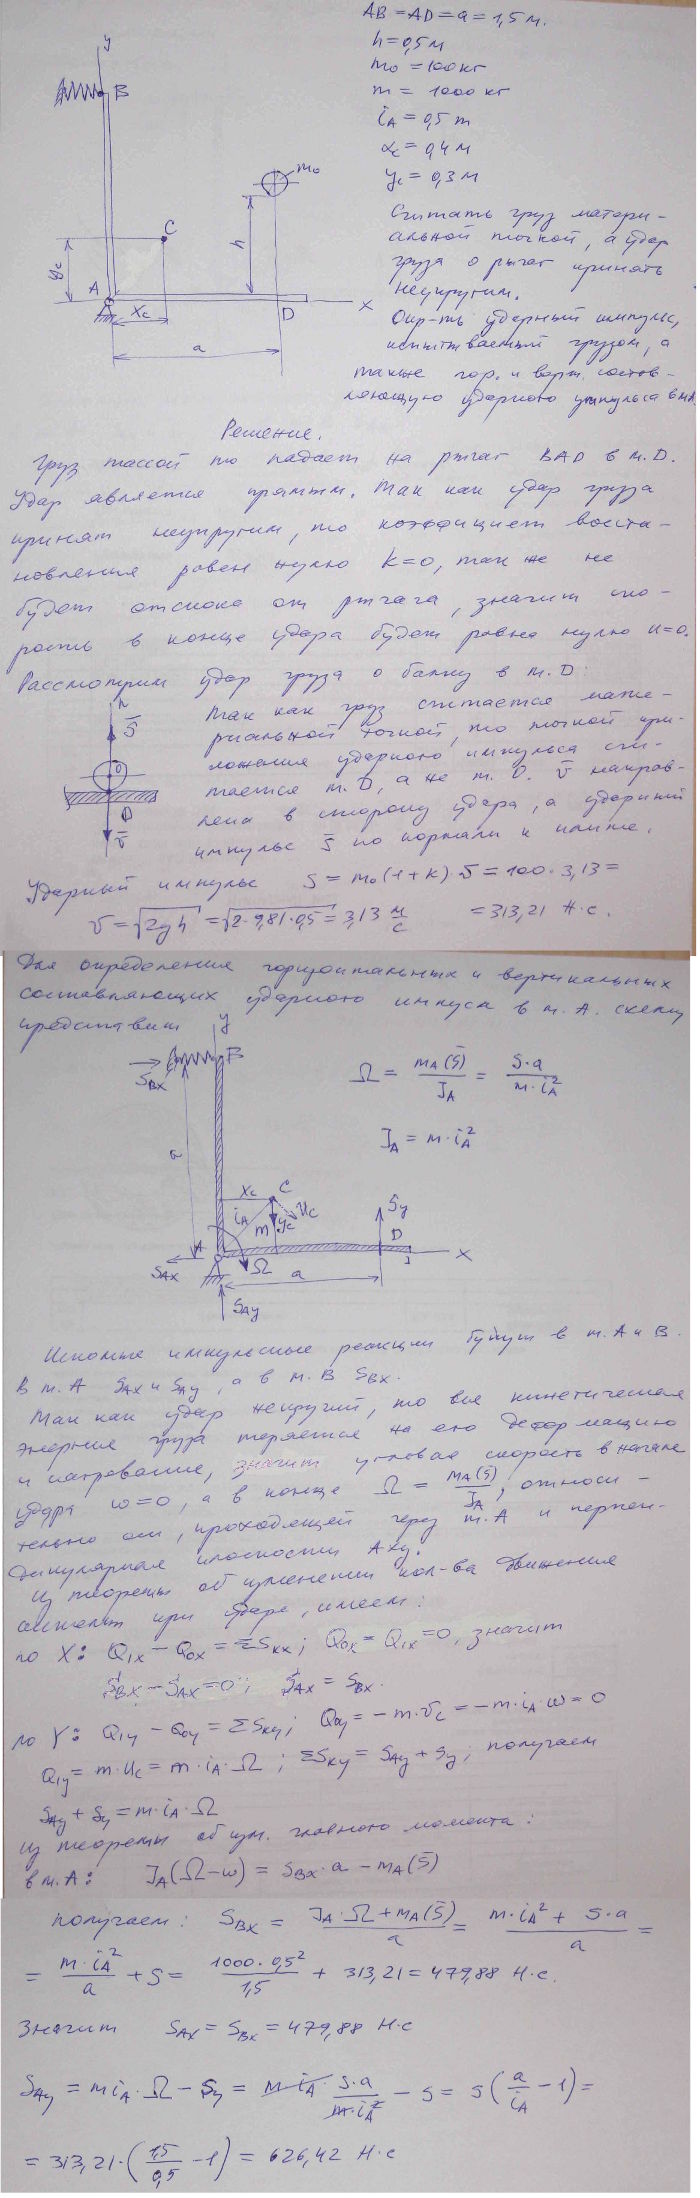 AB = AD = a = 1,5 м.
h = 0,5 м
m₀ = 100 кг
m = 1000 кг
i_A = 0,5 m
x_c = 0,4 м
y_c = 0,3 м
y
B
m₀
C
h
y_c
A
x_c
D
x
a
Считать груз матери-
альной точкой, а удар
груза о рычаг принять
неупругим.
Опр-ть ударный импульс,
испытываемый грузом, а
также гор. и верт. состав-
ляющую ударного импульса в т.А.
Решение.
Груз массой m₀ падает на рычаг BAD в т. D.
Удар является прямым. Так как удар груза
принят неупругим, то коэффициент восста-
новления равен нулю k=0, так же не
будет отскока от рычага, значит ско-
рость в конце удара будет равна нулю u=0.
Рассмотрим удар груза о балку в т. D:
n
S̄
O
D
v̄
Так как груз считается мате-
риальной точкой, то точкой при-
ложения ударного импульса счи-
тается т. D, а не т. O. v̄ направ-
лена в сторону удара, а ударный
импульс S̄ по нормали к плите.
Ударный импульс S = m₀(1+k)·v = 100·3,13 =
v = √2gh = √2·9,81·0,5 = 3,13 м/с = 313,21 Н·с.
Для определения горизонтальных и вертикальных
составляющих ударного импуса в т. А. схему
представим
y
B
S_Bx
a
Ω = m_A(S̄)/J_A = S·a/m·i_A²
J_A = m·i_A²
x_c
C
i_A
m
y_c
u_c
S_y
D
A
x
S_Ax
Ω
a
S_Ay
Искомые импульсные реакции будут в т. А и В.
В т. А S_Ax и S_Ay, а в т. В S_Bx.
Так как удар неупругий, то вся кинетическая
энергия груза теряется на его деформацию
и нагревание, значит угловая скорость в начале
удара ω=0, а в конце Ω = m_A(S̄)/J_A, относи-
тельно оси, проходящей через т. А и перпен-
дикулярная плоскости Axy.
Из теоремы об изменении кол-ва движения
системы при ударе, имеем:
по X: Q₁x − Q₀x = ΣS_kx; Q₀x = Q₁x = 0, значит
S_Bx − S_Ax = 0; S_Ax = S_Bx.
по Y: Q₁y − Q₀y = ΣS_ky; Q₀y = −m·v_c = −m·i_A·ω = 0
Q₁y = m·u_c = m·i_A·Ω; ΣS_ky = S_Ay + S_y; получаем
S_Ay + S_y = m·i_A·Ω
Из теоремы об изм. главного момента:
в т. А: J_A(Ω−ω) = S_Bx·a − m_A(S̄)
получаем: S_Bx = J_A·Ω + m_A(S̄)/a = m·i_A² + S·a/a =
= m·i_A²/a + S = 1000·0,5²/1,5 + 313,21 = 479,88 Н·с.
Значит S_Ax = S_Bx = 479,88 Н·с
S_Ay = m i_A·Ω − S_y = m·i_A·S·a/m·i_A² − S = S(a/i_A − 1) =
= 313,21·(1,5/0,5 − 1) = 626,42 Н·с